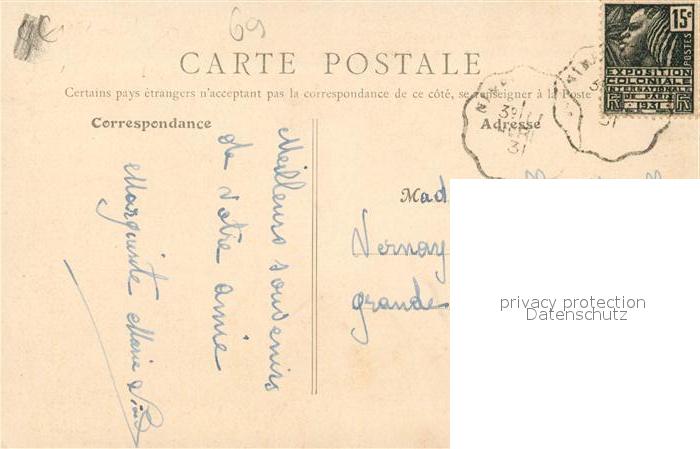 69
CARTE POSTALE
Certains pays étrangers n'acceptant pas la correspondance de ce côté, se renseigner à la Poste
Correspondance
Adresse
15c
POSTES
EXPOSITION
COLONIALE
INTERNATIONALE
DE PARIS
1931
31
Meilleurs souvenirs
de votre amie
Marguerite Marie
Mad
Vernay
grande
privacy protection
Datenschutz